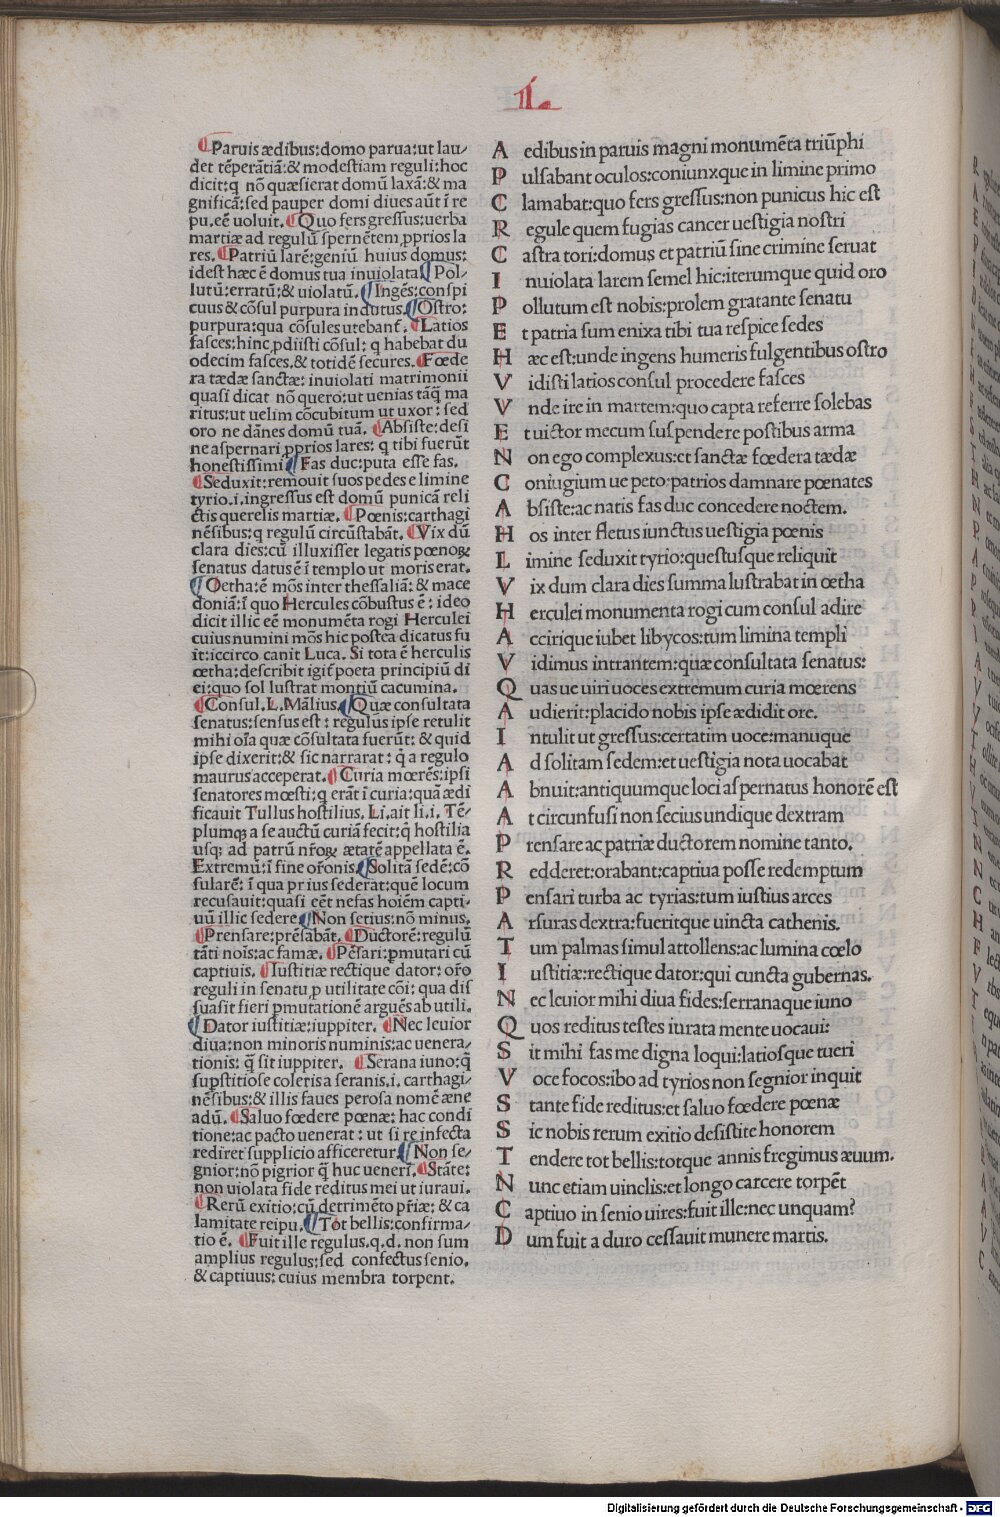 L
Paruis ædibus:domo parua:ut lau/
det tēperātiā:& modestiam reguli:hoc
dicit:q nō quæsierat domū laxā:& ma
gnificā:sed pauper domi diues aūt ī re
pu.eē uoluit. Quo fers gressus:uerba
martiæ ad regulū spernētem ꝓprios la
res. Patriū larē:geniū huius domus:
idest hæc ē domus tua inuiolata Pol/
lutū:erratū:& uiolatū. Ingēs:conspi
cuus & cōsul purpura indutus. Ostro:
purpura:qua cōsules utebanť. Latios
fasces:hinc ꝓdiisti cōsul: q habebat du
odecim fasces.& totidē secures. Fœde
ra tædæ sanctæ: inuiolati matrimonii
quasi dicat nō quero:ut uenias tāꝗ̄ ma
ritus:ut uelim cōcubitum ut uxor: sed
oro ne dānes domū tuā. Absiste:desi
ne aspernari ꝓprios lares: q tibi fuerūt
honestissimi Fas duc:puta esse fas.
Seduxit:remouit suos pedes e limine
tyrio.i.ingressus est domū punicā reli
ctis querelis martiæ. Pœnis:carthagi
nēsibus:q regulū circūstabāt. Vix dū
clara dies:cū illuxisset legatis pœnoꝝ
senatus datus ē ī templo ut moris erat.
Oetha:ē mōs inter thessaliā: & mace
doniā:ī quo Hercules cōbustus ē: ideo
dicit illic eē monumēta rogi Herculei
cuius numini mōs hic postea dicatus fu
it:iccirco canit Luca. Si tota ē herculis
œtha:describit igit̄ poeta principiū di
ei:quo sol lustrat montiū cacumina.
Consul.L.Mālius. Quæ consultata
senatus:sensus est: regulus ipse retulit
mihi oīa quæ cōsultata fuerūt: & quid
ipse dixerit:& sic narrarat: q̄ a regulo
maurus acceperat. Curia mœrēs:ipsi
senatores mœsti:q erāt ī curia:quā ædi
ficauit Tullus hostilius. Li.ait li.i. Tē/
plumqȝ a se auctū curiā fecit:q̄ hostilia
usqȝ ad patrū nr̄oꝝ ætatē appellata ē.
Extremū:ī fine or̄onis. Solitā sedē:cō
sularē: ī qua prius sederat:quē locum
recusauit:quasi eēt nefas hoīem capti/
uū illic sedere Non setius:nō minus.
Prensare:prēsabāt. Ductorē:regulū
tāti nois:ac famæ. Pēsari:ꝑmutari cū
captiuis. Iustitiæ rectique dator: or̄o
reguli in senatu ꝓ utilitate cōi: qua dis
suasit fieri ꝑmutationē arguēs ab utili.
Dator iustitiæ:iuppiter. Nec leuior
diua:non minoris numinis:ac uenera/
tionis: q̄ sit iuppiter. Serana iuno:q̄
supstitiose coleris a seranis.i. carthagi/
nēsibus:& illis faues perosa nomē æne
adū. Saluo fœdere pœnæ: hac condi
tione:ac pacto uenerat: ut si re infecta
rediret supplicio afficeretur. Non se/
gnior:nō pigrior q̄ huc uenerī. Stāte:
non uiolata fide reditus mei ut iuraui.
Rerū exitio:cū detrimēto pr̄iæ: & ca
lamitate reipu. Tot bellis:confirma/
tio ē. Fuit ille regulus.q.d. non sum
amplius regulus:sed confectus senio.
& captiuus: cuius membra torpent.
A edibus in paruis magni monumēta triūphi
P ulsabant oculos:coniunxque in limine primo
C lamabat:quo fers gressus:non punicus hic est
R egule quem fugias cancer uestigia nostri
C astra tori:domus et patriū sine crimine seruat
I nuiolata larem semel hic:iterumque quid oro
P ollutum est nobis:prolem gratante senatu
E t patria sum enixa tibi tua respice sedes
H æc est:unde ingens humeris fulgentibus ostro
V idisti latios consul procedere fasces
V nde ire in martem:quo capta referre solebas
E t uictor mecum suspendere postibus arma
N on ego complexus:et sanctæ fœdera tædæ
C oniugium ue peto:patrios damnare pœnates
A bsiste:ac natis fas duc concedere noctem.
H os inter fletus iunctus uestigia pœnis
L imine seduxit tyrio:questusque reliquit
V ix dum clara dies summa lustrabat in œtha
H erculei monumenta rogi cum consul adire
A ccirique iubet libycos:tum limina templi
V idimus intrantem:quæ consultata senatus:
Q uas ue uiri uoces extremum curia mœrens
A udierit:placido nobis ipse ædidit ore.
I ntulit ut gressus:certatim uoce:manuque
A d solitam sedem:et uestigia nota uocabat
A bnuit:antiquumque loci aspernatus honorē est
A t circunfusi non secius undique dextram
P rensare ac patriæ ductorem nomine tanto.
R edderet:orabant:captiua posse redemptum
P ensari turba ac tyrias:tum iustius arces
A rsuras dextra:fueritque uincta cathenis.
T um palmas simul attollens:ac lumina cœlo
I ustitiæ:rectique dator:qui cuncta gubernas.
N ec leuior mihi diua fides:serranaque iuno
Q uos reditus testes iurata mente uocaui:
S it mihi fas me digna loqui:latiosque tueri
V oce focos:ibo ad tyrios non segnior inquit
S tante fide reditus:et saluo fœdere pœnæ
S ic nobis rerum exitio desistite honorem
T endere tot bellis:totque annis fregimus æuum.
N unc etiam uinclis:et longo carcere torpēt
C aptiuo in senio uires:fuit ille:nec unquam?
D um fuit a duro cessauit munere martis.
Digitalisierung gefördert durch die Deutsche Forschungsgemeinschaft - DFG